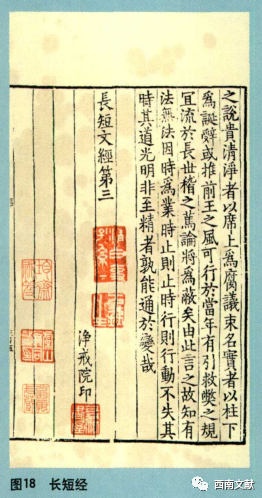 之說貴清淨者以席上爲腐議束名實者以柱下
爲誕辭或推前王之風可行於當年有引救弊之規
冝流於長世稽之篤論將爲蔽矣由此言之故知有
法無法因時爲業時止則止時行則行動不失其
時其道光明非至精者孰能通於變哉
長短文經第三
淨戒院印
图18 长短经
西南文献